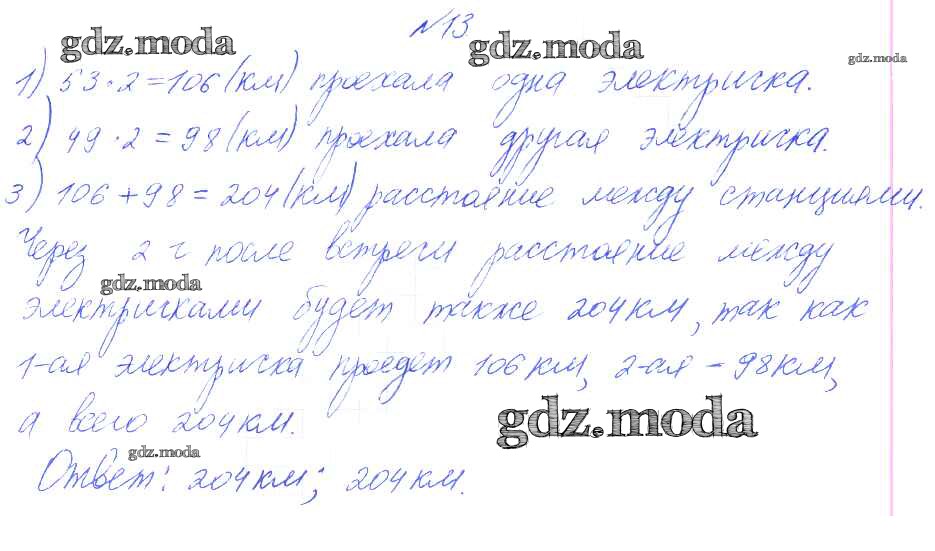 №13.
gdz.moda gdz.moda gdz.moda
1) 53·2=106 (км) проехала одна электричка.
2) 49·2=98 (км) проехала другая электричка.
3) 106+98=204 (км) расстояние между станциями.
Через 2 ч после встречи расстояние между
gdz.moda
электричками будет также 204 км, так как
1-ая электричка проедет 106 км, 2-ая – 98 км,
а всего 204 км.
gdz.moda
gdz.moda
Ответ: 204 км; 204 км.